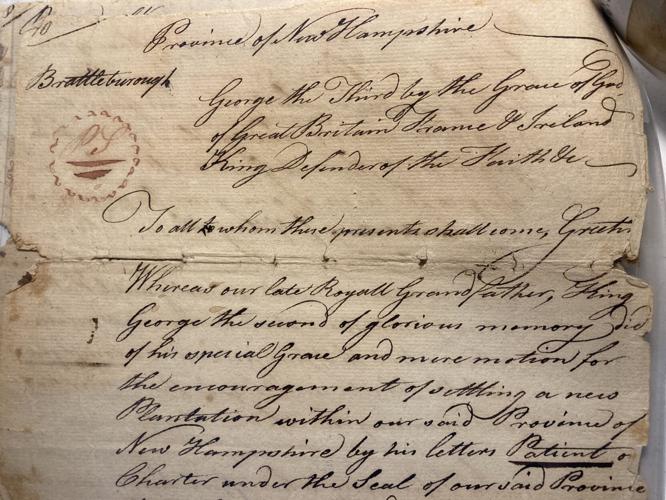 Province of New Hampshire
Brattleborough
George the Third by the Grace of God
of Great Britain France & Ireland
King Defender of the Faith &c
PS
To all to whom these presents shall come, Greetin
Whereas our late Royall Grandfather, King
George the second of glorious memory did
of his special Grace and mere motion for
the encouragement of settling a new
Plantation within our said Province of
New Hampshire by his letters Patient o
Charter under the Seal of our said Province